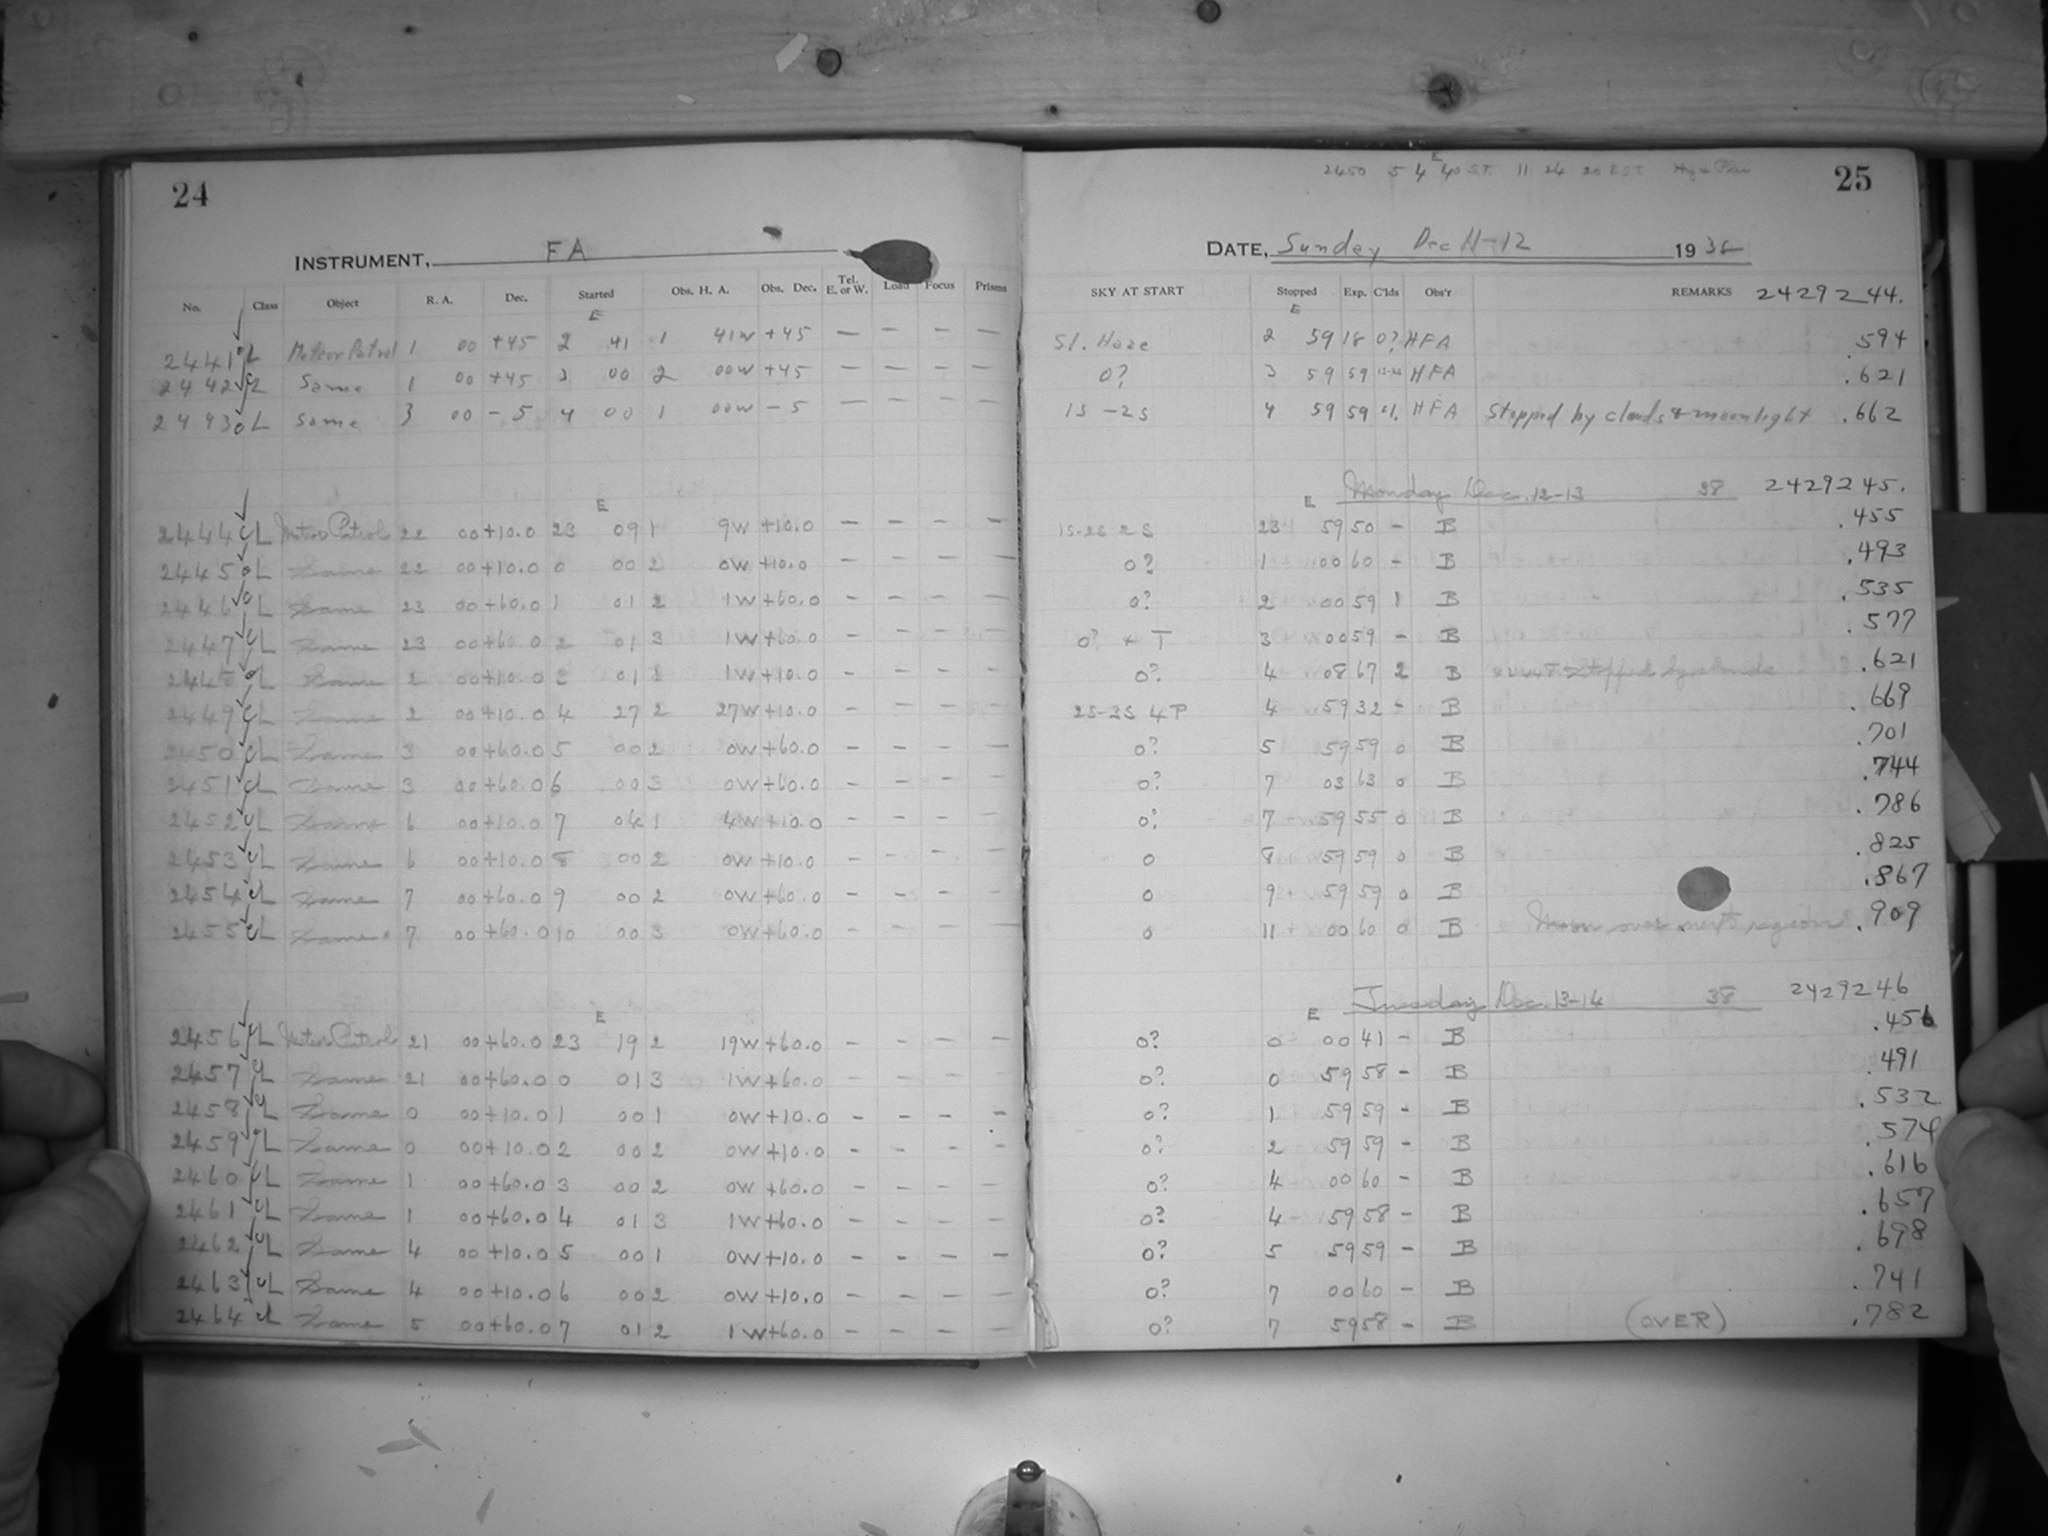 24
INSTRUMENT, FA
No. Class Object R. A. Dec. Started Obs. H. A. Obs. Dec. Tel. E. or W. Load Focus Prisms
E
2441 L Meteor Patrol 1 00 +45 2 41 1 41W +45 — — — —
2442 L Same 1 00 +45 3 00 2 00W +45 — — — —
2443 L Same 3 00 -5 4 00 1 00W -5 — — — —
E
2444 L Meteor Patrol 22 00 +10.0 23 09 1 9W +10.0 - - - -
2445 L Same 22 00 +10.0 0 00 2 0W +10.0 - - - -
2446 L Same 23 00 +60.0 1 01 2 1W +60.0 - - - -
2447 L Same 23 00 +60.0 2 01 3 1W +60.0 - - - -
2448 L Same 2 00 +10.0 3 01 1 1W +10.0 - - - -
2449 L Same 2 00 +10.0 4 27 2 27W +10.0 - - - -
2450 L Same 3 00 +60.0 5 00 2 0W +60.0 - - - -
2451 L Same 3 00 +60.0 6 00 3 0W +60.0 - - - -
2452 L Same 6 00 +10.0 7 04 1 4W +10.0 - - - -
2453 L Same 6 00 +10.0 8 00 2 0W +10.0 - - - -
2454 L Same 7 00 +60.0 9 00 2 0W +60.0 - - - -
2455 L Same 7 00 +60.0 10 00 3 0W +60.0 - - - -
E
2456 L Meteor Patrol 21 00 +60.0 23 19 2 19W +60.0 - - - -
2457 L Same 21 00 +60.0 0 01 3 1W +60.0 - - - -
2458 L Same 0 00 +10.0 1 00 1 0W +10.0 - - - -
2459 L Same 0 00 +10.0 2 00 2 0W +10.0 - - - -
2460 L Same 1 00 +60.0 3 00 2 0W +60.0 - - - -
2461 L Same 1 00 +60.0 4 01 3 1W +60.0 - - - -
2462 L Same 4 00 +10.0 5 00 1 0W +10.0 - - - -
2463 L Same 4 00 +10.0 6 00 2 0W +10.0 - - - -
2464 L Same 5 00 +60.0 7 01 2 1W +60.0 - - - -
2450 5 4 40 ST. 11 24 20 EST
25
DATE, Sunday Dec 11-12 1938
SKY AT START Stopped Exp. C'lds Obs'r REMARKS 2429244.
E
Sl. Haze 2 59 18 0? HFA .594
0? 3 59 59 HFA .621
1S -2S 4 59 59 cl. HFA Stopped by clouds & moonlight .662
E Monday Dec. 12-13 38 2429245.
1S-2S 2S 23 59 50 - B .455
0? 1 00 60 - B .493
0? 2 00 59 1 B .535
0? + T 3 00 59 - B .577
0? 4 08 67 2 B 2448 Stopped by clouds .621
2S-3S 4P 4 59 32 - B .669
0? 5 59 59 0 B .701
0? 7 03 63 0 B .744
0? 7 59 55 0 B .786
0 8 59 59 0 B .825
0 9 59 59 0 B .867
0 11 00 60 0 B Moon over next region .909
E Tuesday Dec. 13-14 38 2429246
0? 0 00 41 - B .456
0? 0 59 58 - B .491
0? 1 59 59 - B .532
0? 2 59 59 - B .574
0? 4 00 60 - B .616
0? 4 59 58 - B .657
0? 5 59 59 - B .698
0? 7 00 60 - B .741
0? 7 59 58 - B (OVER) .782